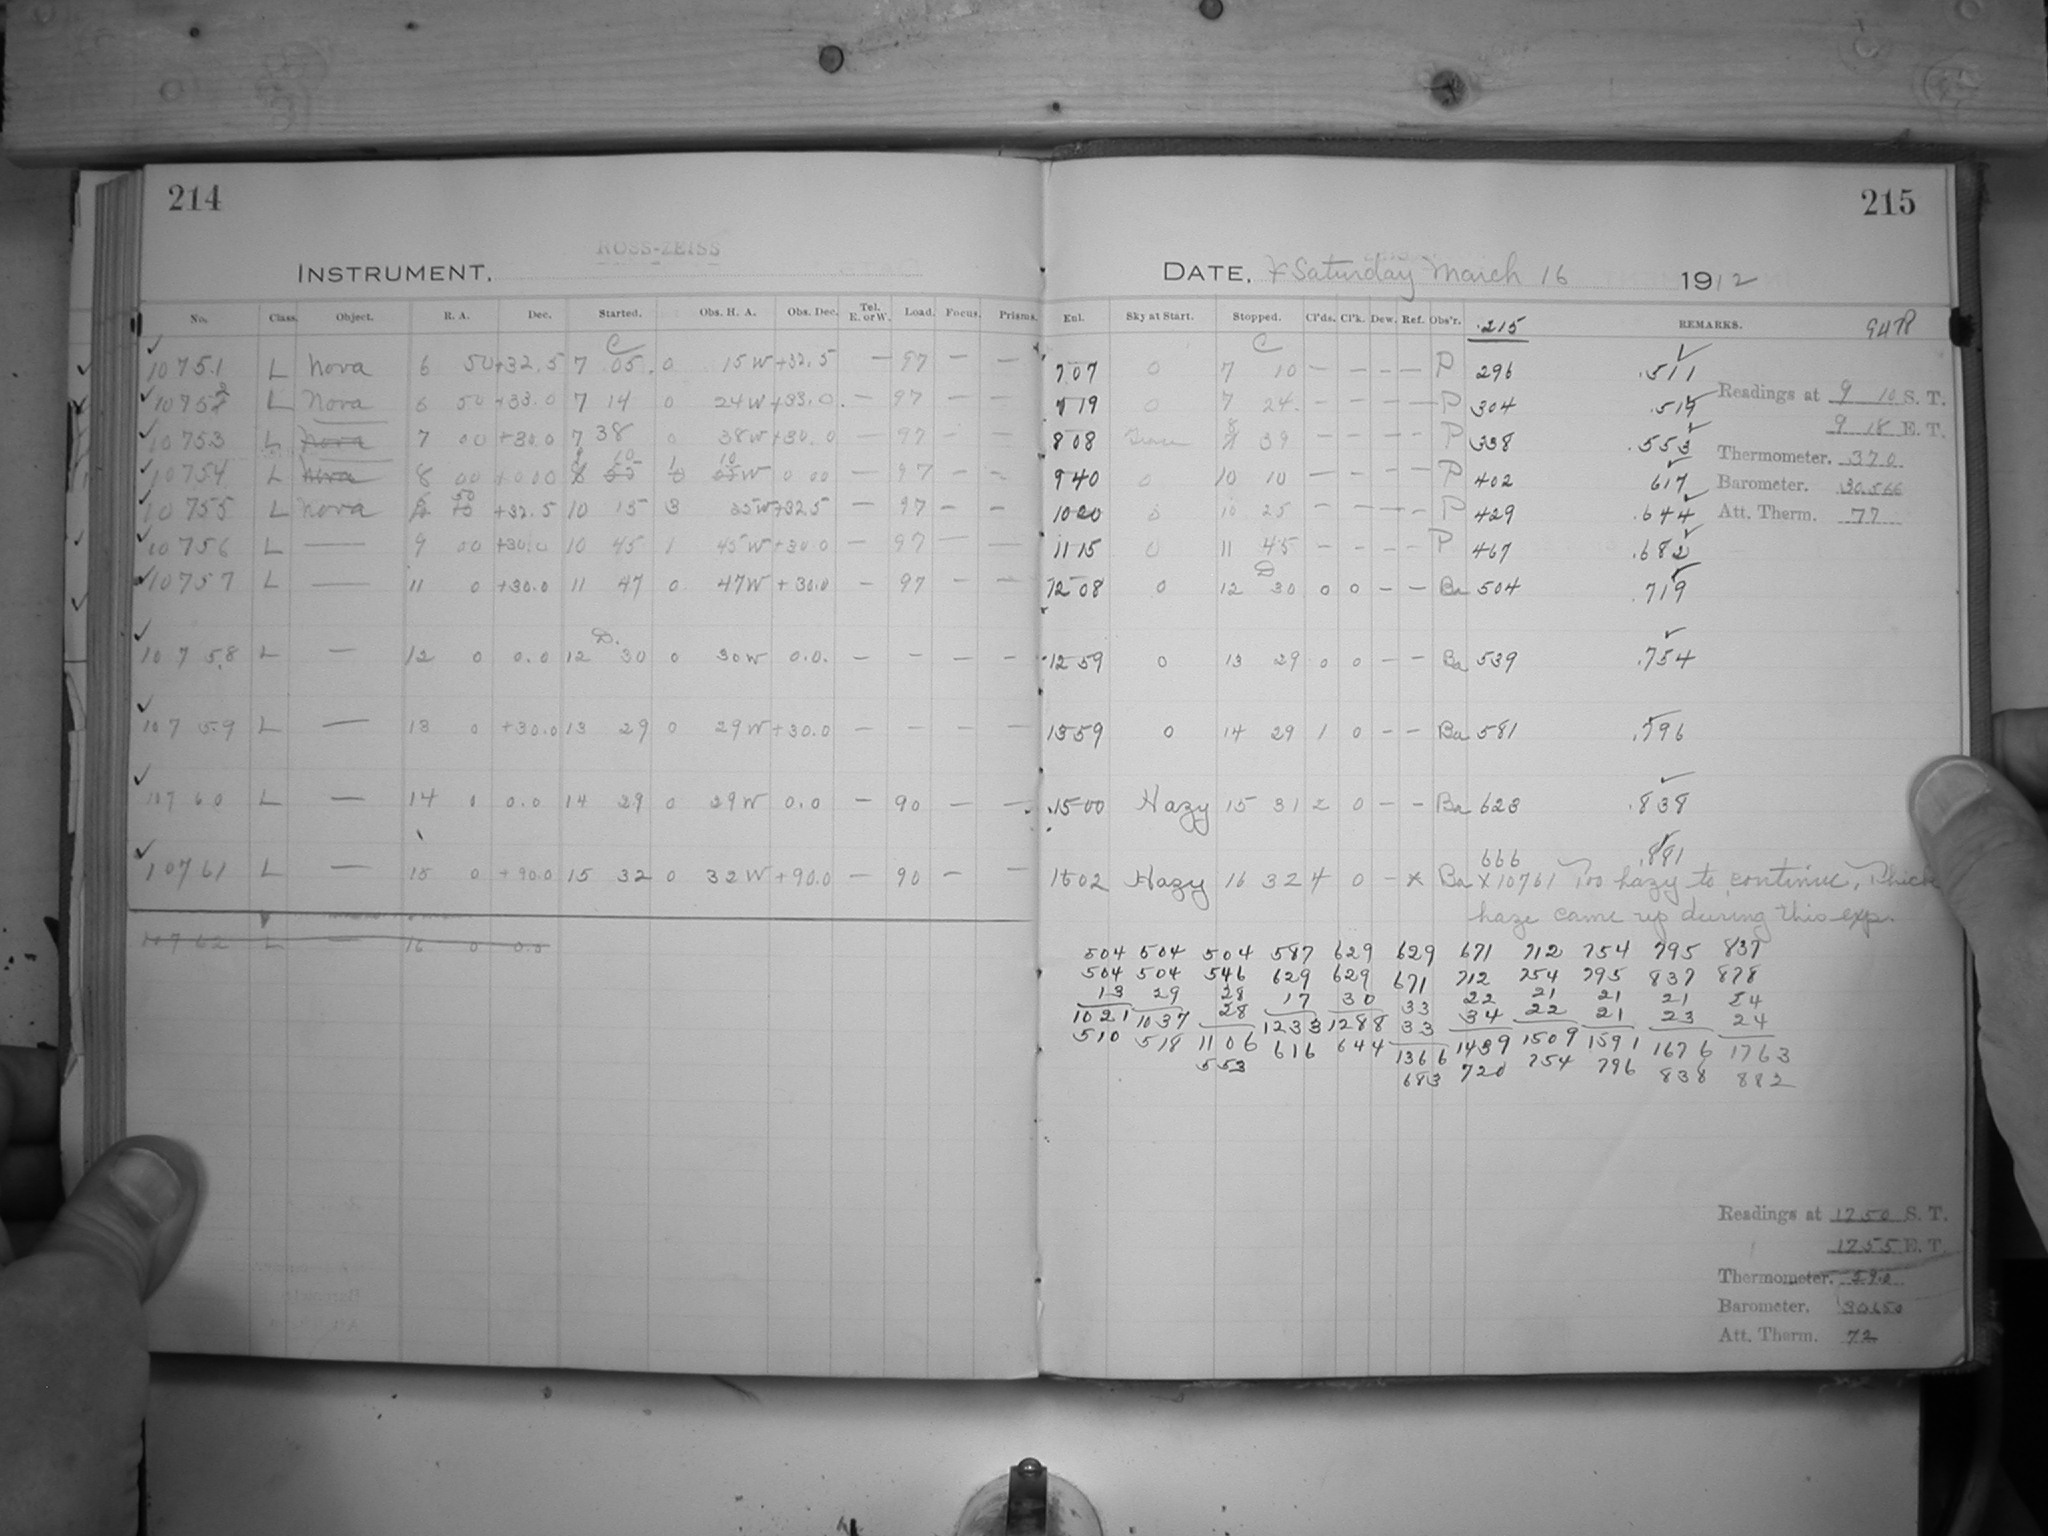 214
ROSS-ZEISS
INSTRUMENT.
No. Class. Object. R. A. Dec. Started. Obs. H. A. Obs. Dec. Tel. E. or W. Load. Focus. Prisms.
C
10751 L Nova 6 50 +32.5 7 05 0 15 W +32.5 — 97 — —
10752 L Nova 6 50 +33.0 7 14 0 24 W +33.0 — 97 — —
10753 L Nova 7 00 +30.0 7 38 0 38 W +30.0 — 97 — —
10754 L Nova 8 00 +0.00 10 10 W 0 00 — 97 — —
10755 L Nova 50 +32.5 10 15 3 25 W +32.5 — 97 — —
10756 L — 9 00 +30.0 10 45 1 45 W +30.0 — 97 — —
10757 L — 11 0 +30.0 11 47 0 47 W +30.0 — 97 — —
D.
10758 L — 12 0 0.0 12 30 0 30 W 0.0. — — — —
10759 L — 13 0 +30.0 13 29 0 29 W +30.0 — — — —
10760 L — 14 0 0.0 14 29 0 29 W 0.0 — 90 — —
10761 L — 15 0 +90.0 15 32 0 32 W +90.0 — 90 — —
10762 L — 16 0 0.0
215
DATE, Saturday March 16 1912
Enl. Sky at Start. Stopped. Cl'ds. Cl'k. Dew. Ref. Obs'r. .215 REMARKS.
C
707 0 7 10 — — — — P 296 .511
719 0 7 24 — — — — P 304 .519
808 39 — — — — P 338 .553
940 0 10 10 — — — — P 402 617
1020 0 10 25 — — — — P 429 .644
1115 0 11 45 — — — — P 467 .682
D
1208 0 12 30 0 0 — — Ba 504 .719
1259 0 13 29 0 0 — — Ba 539 .754
1359 0 14 29 1 0 — — Ba 581 .796
1500 Hazy 15 31 2 0 — — Ba 623 .838
666 .881
1602 Hazy 16 32 4 0 — x Ba X 10761 Too hazy to continue, Thick
haze came up during this exp.
Readings at 9 10 S. T.
9 18 E. T.
Thermometer. 37.0
Barometer. 30.566
Att. Therm. 77
504 504 504 587 629 629 671 712 754 795 837
504 504 546 629 629 671 712 754 795 837 878
13 29 28 17 30 33 22 21 21 21 24
28 33 34 22 21 23 24
1021 1037 1106 1233 1288 1366 1439 1509 1591 1676 1763
510 518 553 616 644 683 720 754 796 838 882
Readings at 1750 S. T.
1755 E. T.
Thermometer.
Barometer. 30.650
Att. Therm. 72